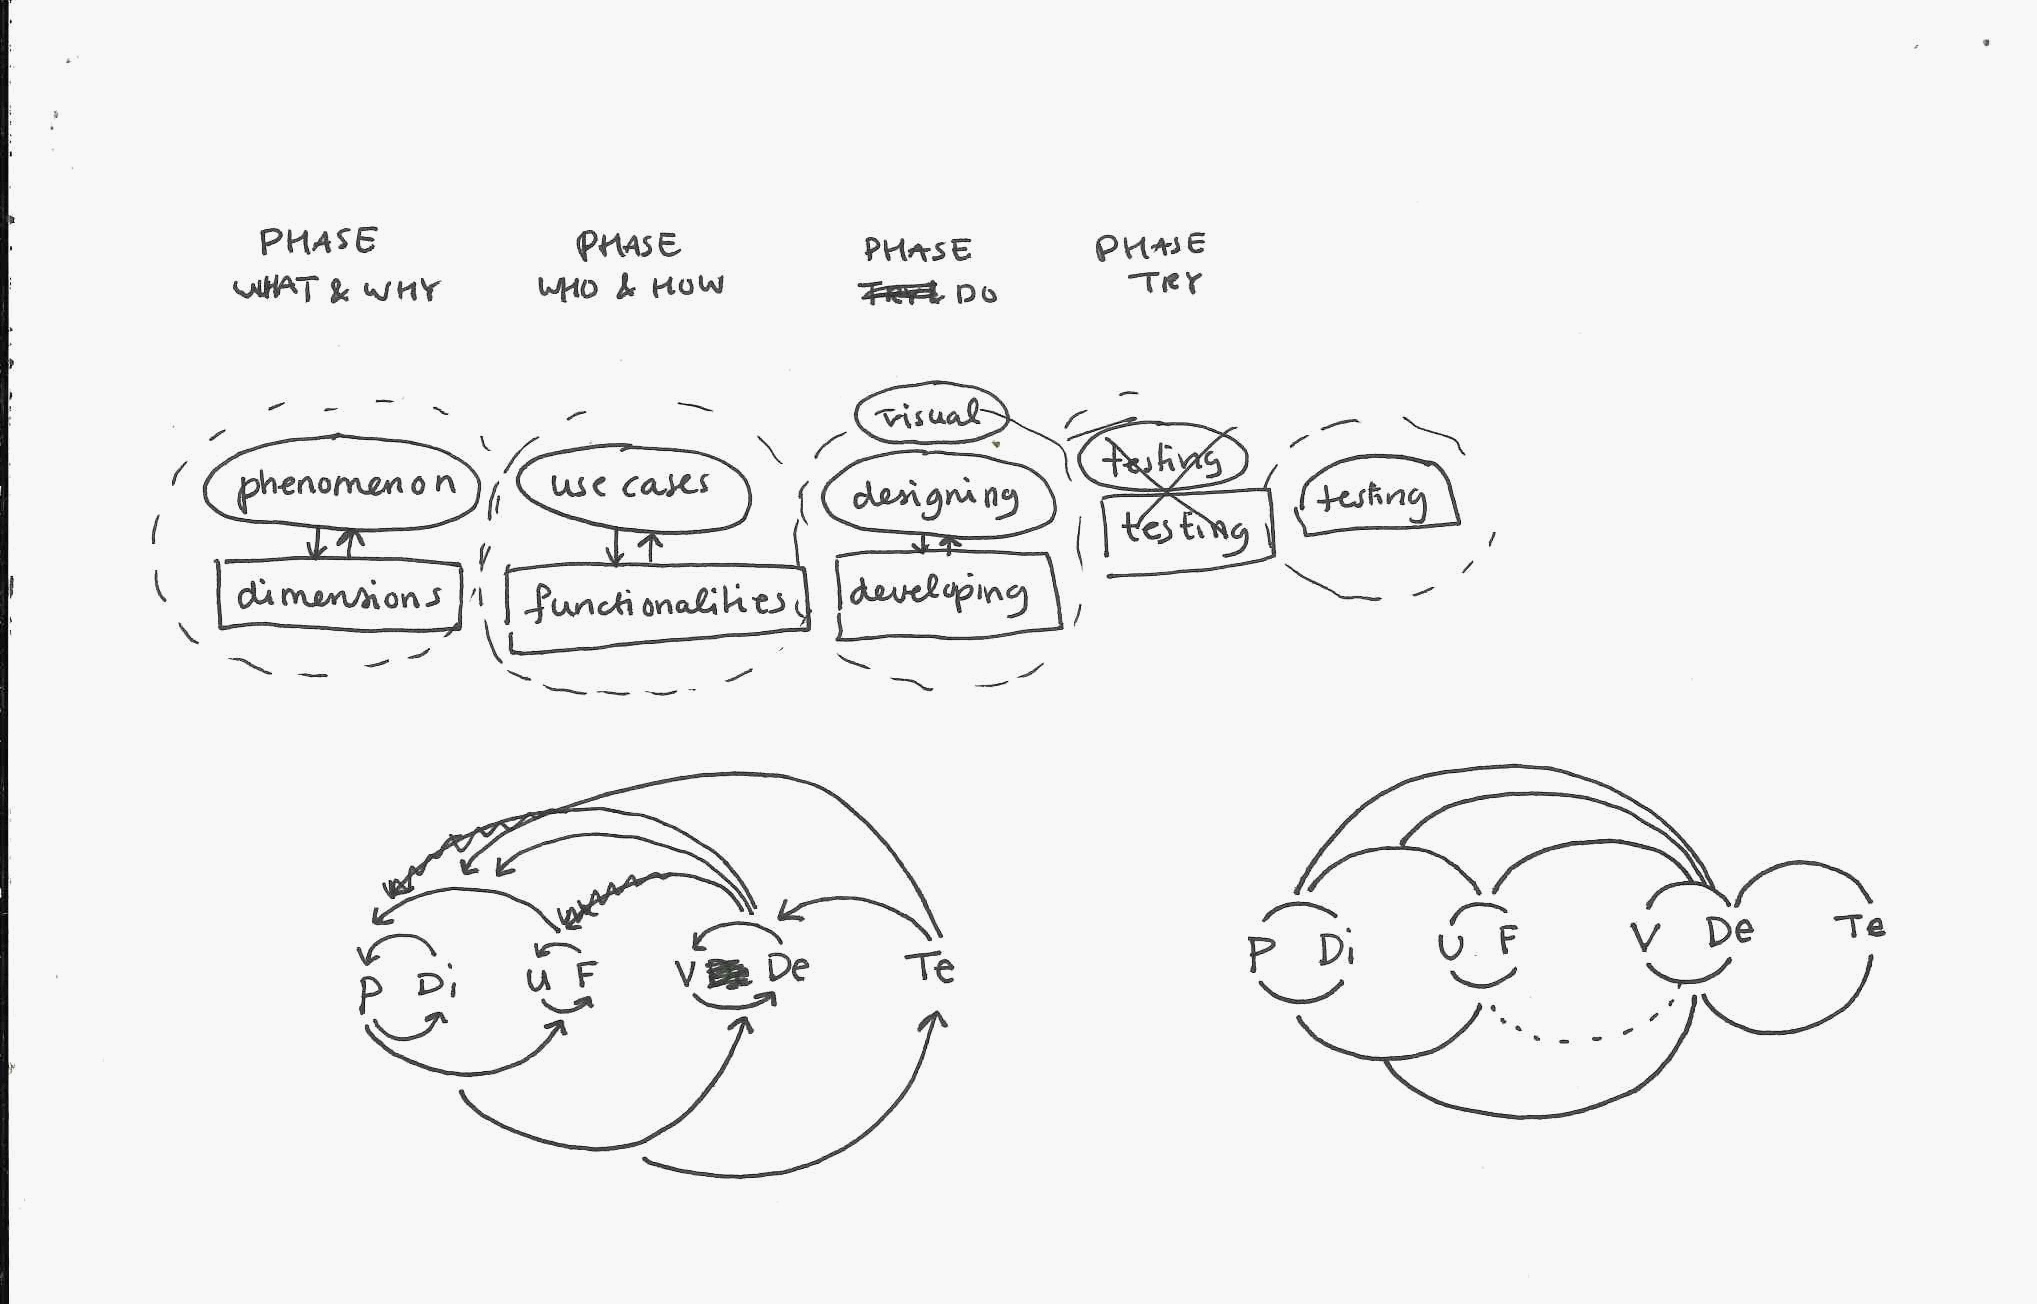 PHASE
WHAT & WHY
PHASE
WHO & HOW
PHASE
DO
PHASE
TRY
phenomenon
dimensions
use cases
functionalities
visual
designing
developing
testing
testing
testing
P Di U F V De Te
P Di U F V De Te